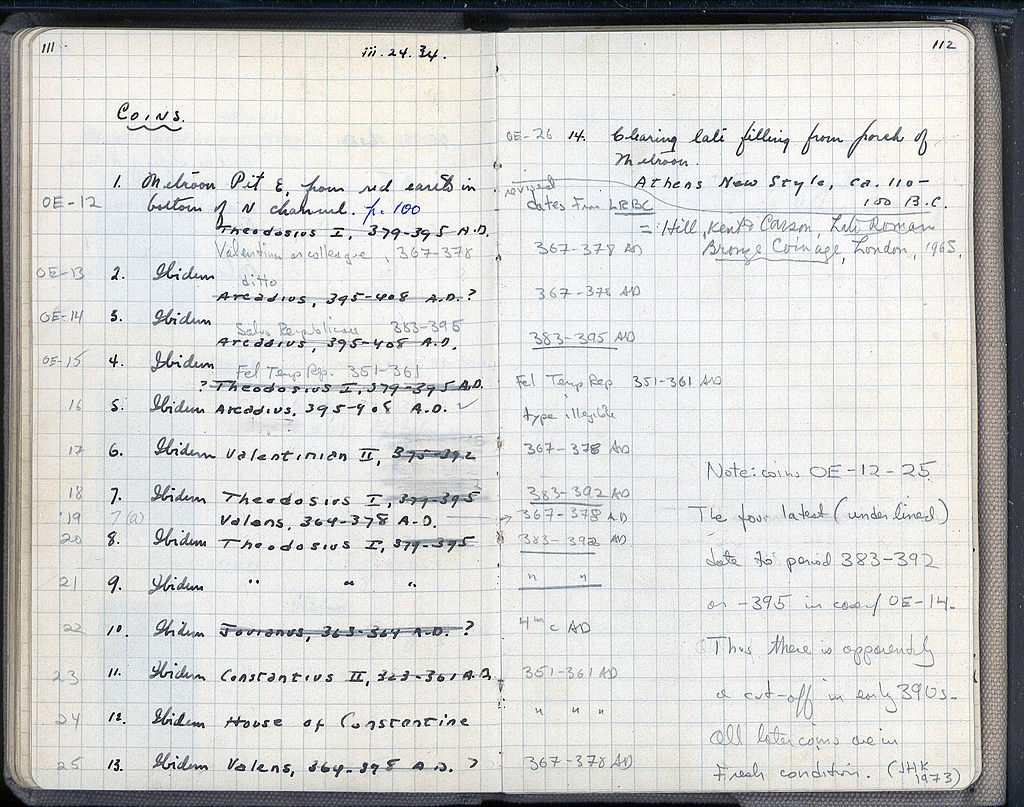 111
iii.24.34.
Coins.
1. Metroon Pit E, from red earth in
OE-12 bottom of N channel. p. 100
Theodosius I, 379-395 A.D.
Valentinian or colleague, 367-378
OE-13 2. Ibidem ditto
Arcadius, 395-408 A.D.?
OE-14 3. Ibidem Salus Reipublicae 383-395
Arcadius, 395-408 A.D.
OE-15 4. Ibidem Fel Temp Rep. 351-361
? Theodosius I, 379-395 A.D.
16 5. Ibidem Arcadius, 395-408 A.D. ✓
17 6. Ibidem Valentinian II, 375-392
18 7. Ibidem Theodosius I, 379-395
19 7(a) Valens, 364-378 A.D.
20 8. Ibidem Theodosius I, 379-395
21 9. Ibidem " " "
22 10. Ibidem Jovianus, 363-364 A.D. ?
23 11. Ibidem Constantius II, 323-361 A.D.
24 12. Ibidem House of Constantine
25 13. Ibidem Valens, 364-378 A.D. ?
112
OE-26 14. Clearing late filling from porch of
Metroon.
Athens New Style, ca. 110-
100 B.C.
revised
dates from LRBC
= Hill, Kent & Carson, Late Roman
Bronze Coinage, London, 1965.
367-378 AD
367-378 AD
383-395 AD
Fel Temp Rep 351-361 AD
type illegible
367-378 AD
383-392 AD
→ 367-378 AD
383-392 AD
" "
4th c AD
351-361 AD
" " "
367-378 AD
Note: coins OE-12-25.
The four latest (underlined)
date to period 383-392
or -395 in case of OE-14.
Thus there is apparently
a cut-off in early 390s.
All later coins are in
Fresh condition. (JHK
1973)